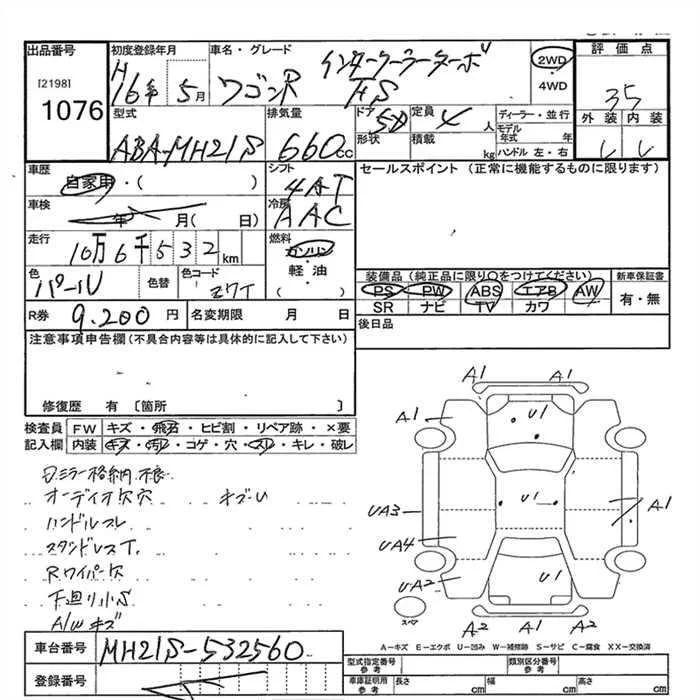 出品番号 初度登録年月 車名・グレード 評価点
[2198]
1076
H16年 5月 ワゴンR インタークーラーターボ
FS
2WD
・
4WD
35
型式 排気量 ドア 定員 ディーラー・並行 外装 内装
ABA-MH21S 660cc 5D 4人
形状 積載 kg モデル年式 年
ハンドル 左・右
車歴 シフト セールスポイント(正常に機能するものに限ります)
自家用・( ) 4AT
車検 冷房
年 月( 日) AAC
走行 燃料
10万6千532km ガソリン
・
軽・油
( )
色 色替 色コード 装備品(純正品に限り○をつけてください) 新車保証書
パール PS PW ABS エアB AW 有・無
SR ナビ TV カワ
R券 9.200円 名変期限 月 日 後日品
注意事項申告欄(不具合内容等は具体的に記入して下さい)
修復歴 有 〔箇所 〕
検査員 FW キズ・飛石・ヒビ割・リペア跡・×要
記入欄 内装 キズ・汚れ・コゲ・穴・スレ・キレ・破レ
ミラー格納不良
オーディオ欠穴 キズ・U
ハンドルスレ
Rワイパー欠
下廻り小S
A/Wキズ
A1 A1
A1 U1
UA3 U1 A1
UA4
UA2 U1
スペア
A2 A1 A2
A-キズ E-エクボ U-凹み W-補修跡 S-サビ C-腐食 XX-交換済
車台番号 MH21S-532560
登録番号
型式指定番号 参考 類別区分番号 参考
車庫証明用 参考 長さ cm 幅 cm 高さ cm